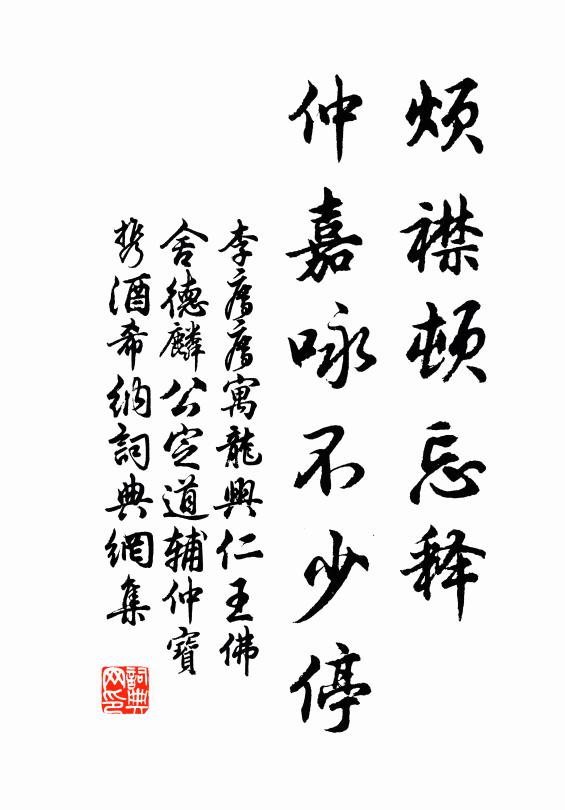 烦襟顿忘释
仲嘉咏不少停
李廌廌寓龍興仁王佛
舍德麟公定道辅仲寶
携酒希纳詞典網集
詞典网印